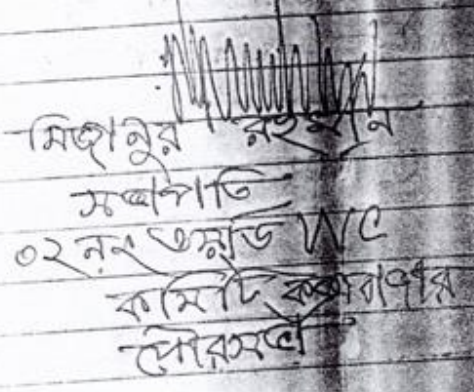 মিজানুর রহমান
সভাপতি
০২ নং ওয়ার্ড WC
কমিটি কক্সবাজার
পৌরসভা